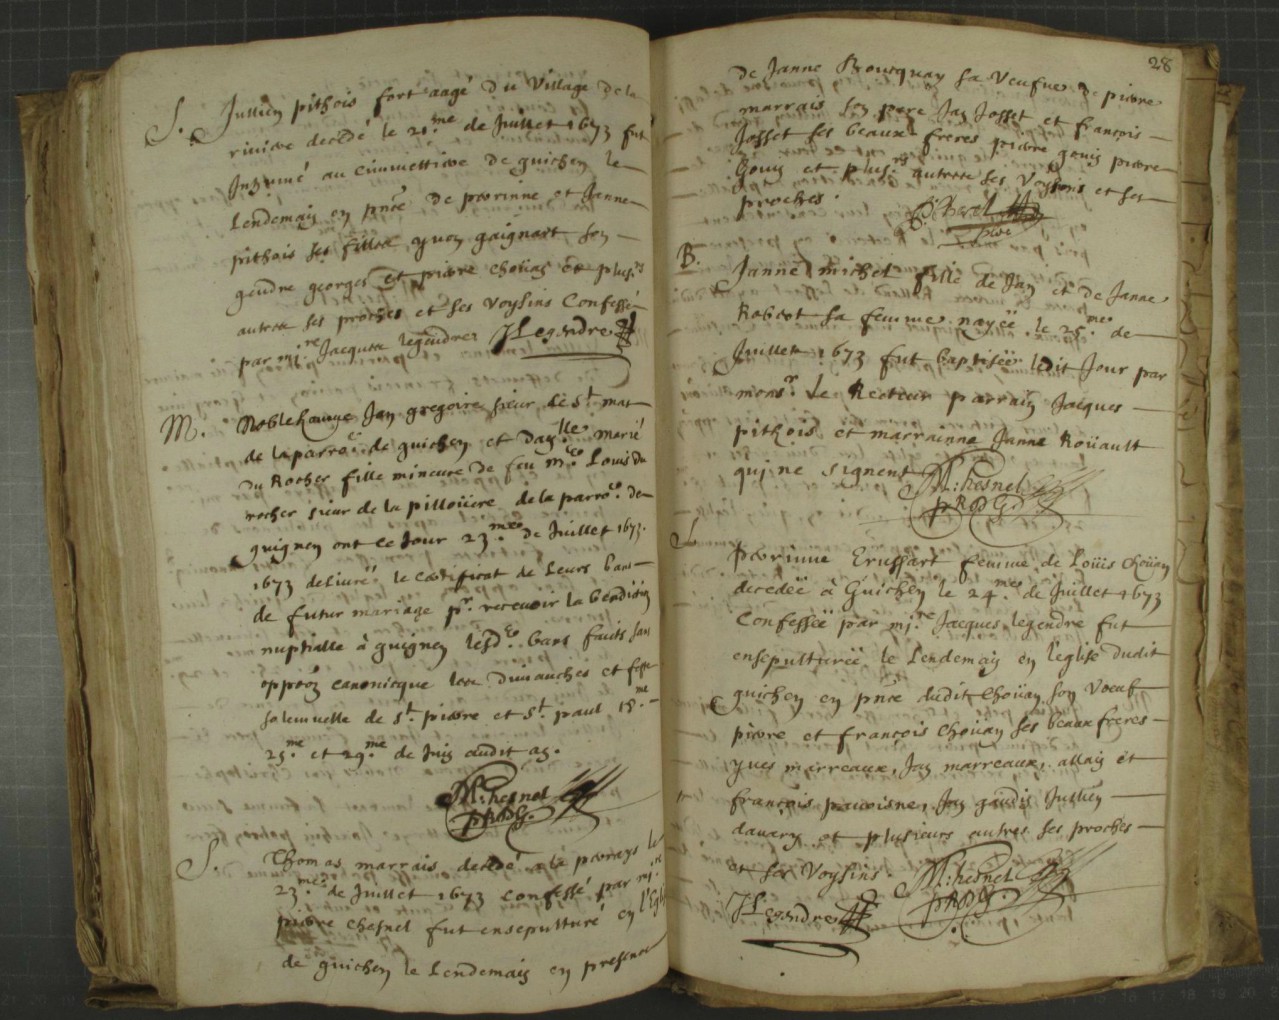 S. Jullien pithois fort aagé du Village de la
riviere decedé le 21.me de Juillet 1673 fut
Inhumé au cimmettiere de guichen le
Lendemain en pnce de perrinne et Janne
pithois ses filles, yvon gaignart son
gendre georges et pierre choüan et plus.rs
autres ses proches et ses voysins Confessé
par mi.re Jacques legendre. J Legendre
M. Noble homme Jan gregoire sieur de St. mar
de la parro.e de guichen et dam.lle marie
du Rocher fille mineure de feu m.e Louis du
rocher sieur de la pilloüere de la parro.e de
guignen ont ce Jour 23.me de Juillet 1673.
1673 delivré le certificat de Leurs bans
de futur mariage pr. recevoir la benediction
nuptialle à guignen lesd. bans faits sans
canonicque les dimanches et feste
solemnelle de St. pierre et St. paul 18.me
25.me et 29.me de Juin audit an.
M: chesnel
S. Thomas marrais decedé le
23.me de Juillet 1673 confessé par mi.re
pierre chesnel fut ensepulturé en l'Eglise
de guichen le Lendemain en presence
28
de Janne Bourquay sa Veufve de pierre
marrais son pere Jan Josset et françois
Josset ses beaux freres pierre gouin pierre
Gouin et plus.rs autres ses Voysins et ses
proches.
B. Janne michel fille de Jan et de Janne
Robert sa femme nayëe le 25.me de
Juillet 1673 fut baptisëe ledit Jour par
monsr. Le Recteur parrain Jacques
pithois et marrainne Janne Roüault
qui ne signent M: chesnel
Perrinne femme de Loüis choüan
decedëe à Guichen le 24.me de Juillet 1673
Confessëe par mi.re Jacques legendre fut
ensepulturëe le Lendemain en l'eglise dudit
guichen en pnce dudit Choüan son Veuf
pierre et françois choüan ses beaux freres
yves marreaux, Jan marreaux, allain et
françois Jan Jullien
davary et plusieurs autres ses proches
et ses Voysins. M: chesnel
J Legendre